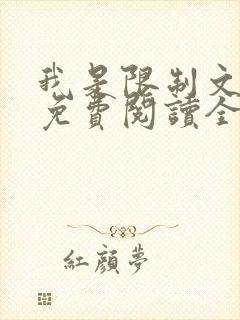 我是限制文
免費閱讀全
紅顏夢